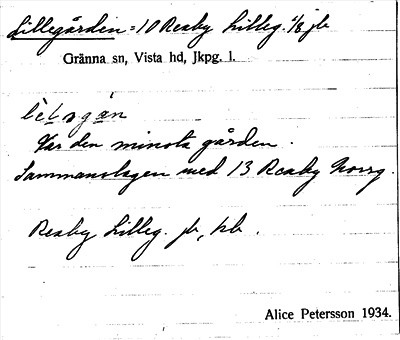 Lillegården = 10 Reaby Lilleg. 1/8 jb
Gränna sn, Vista hd, Jkpg. l.
Var den minsta gården.
Sammanslagen med 13 Reaby Norrg.
Reaby Lilleg. jb, kb.
Alice Petersson 1934.